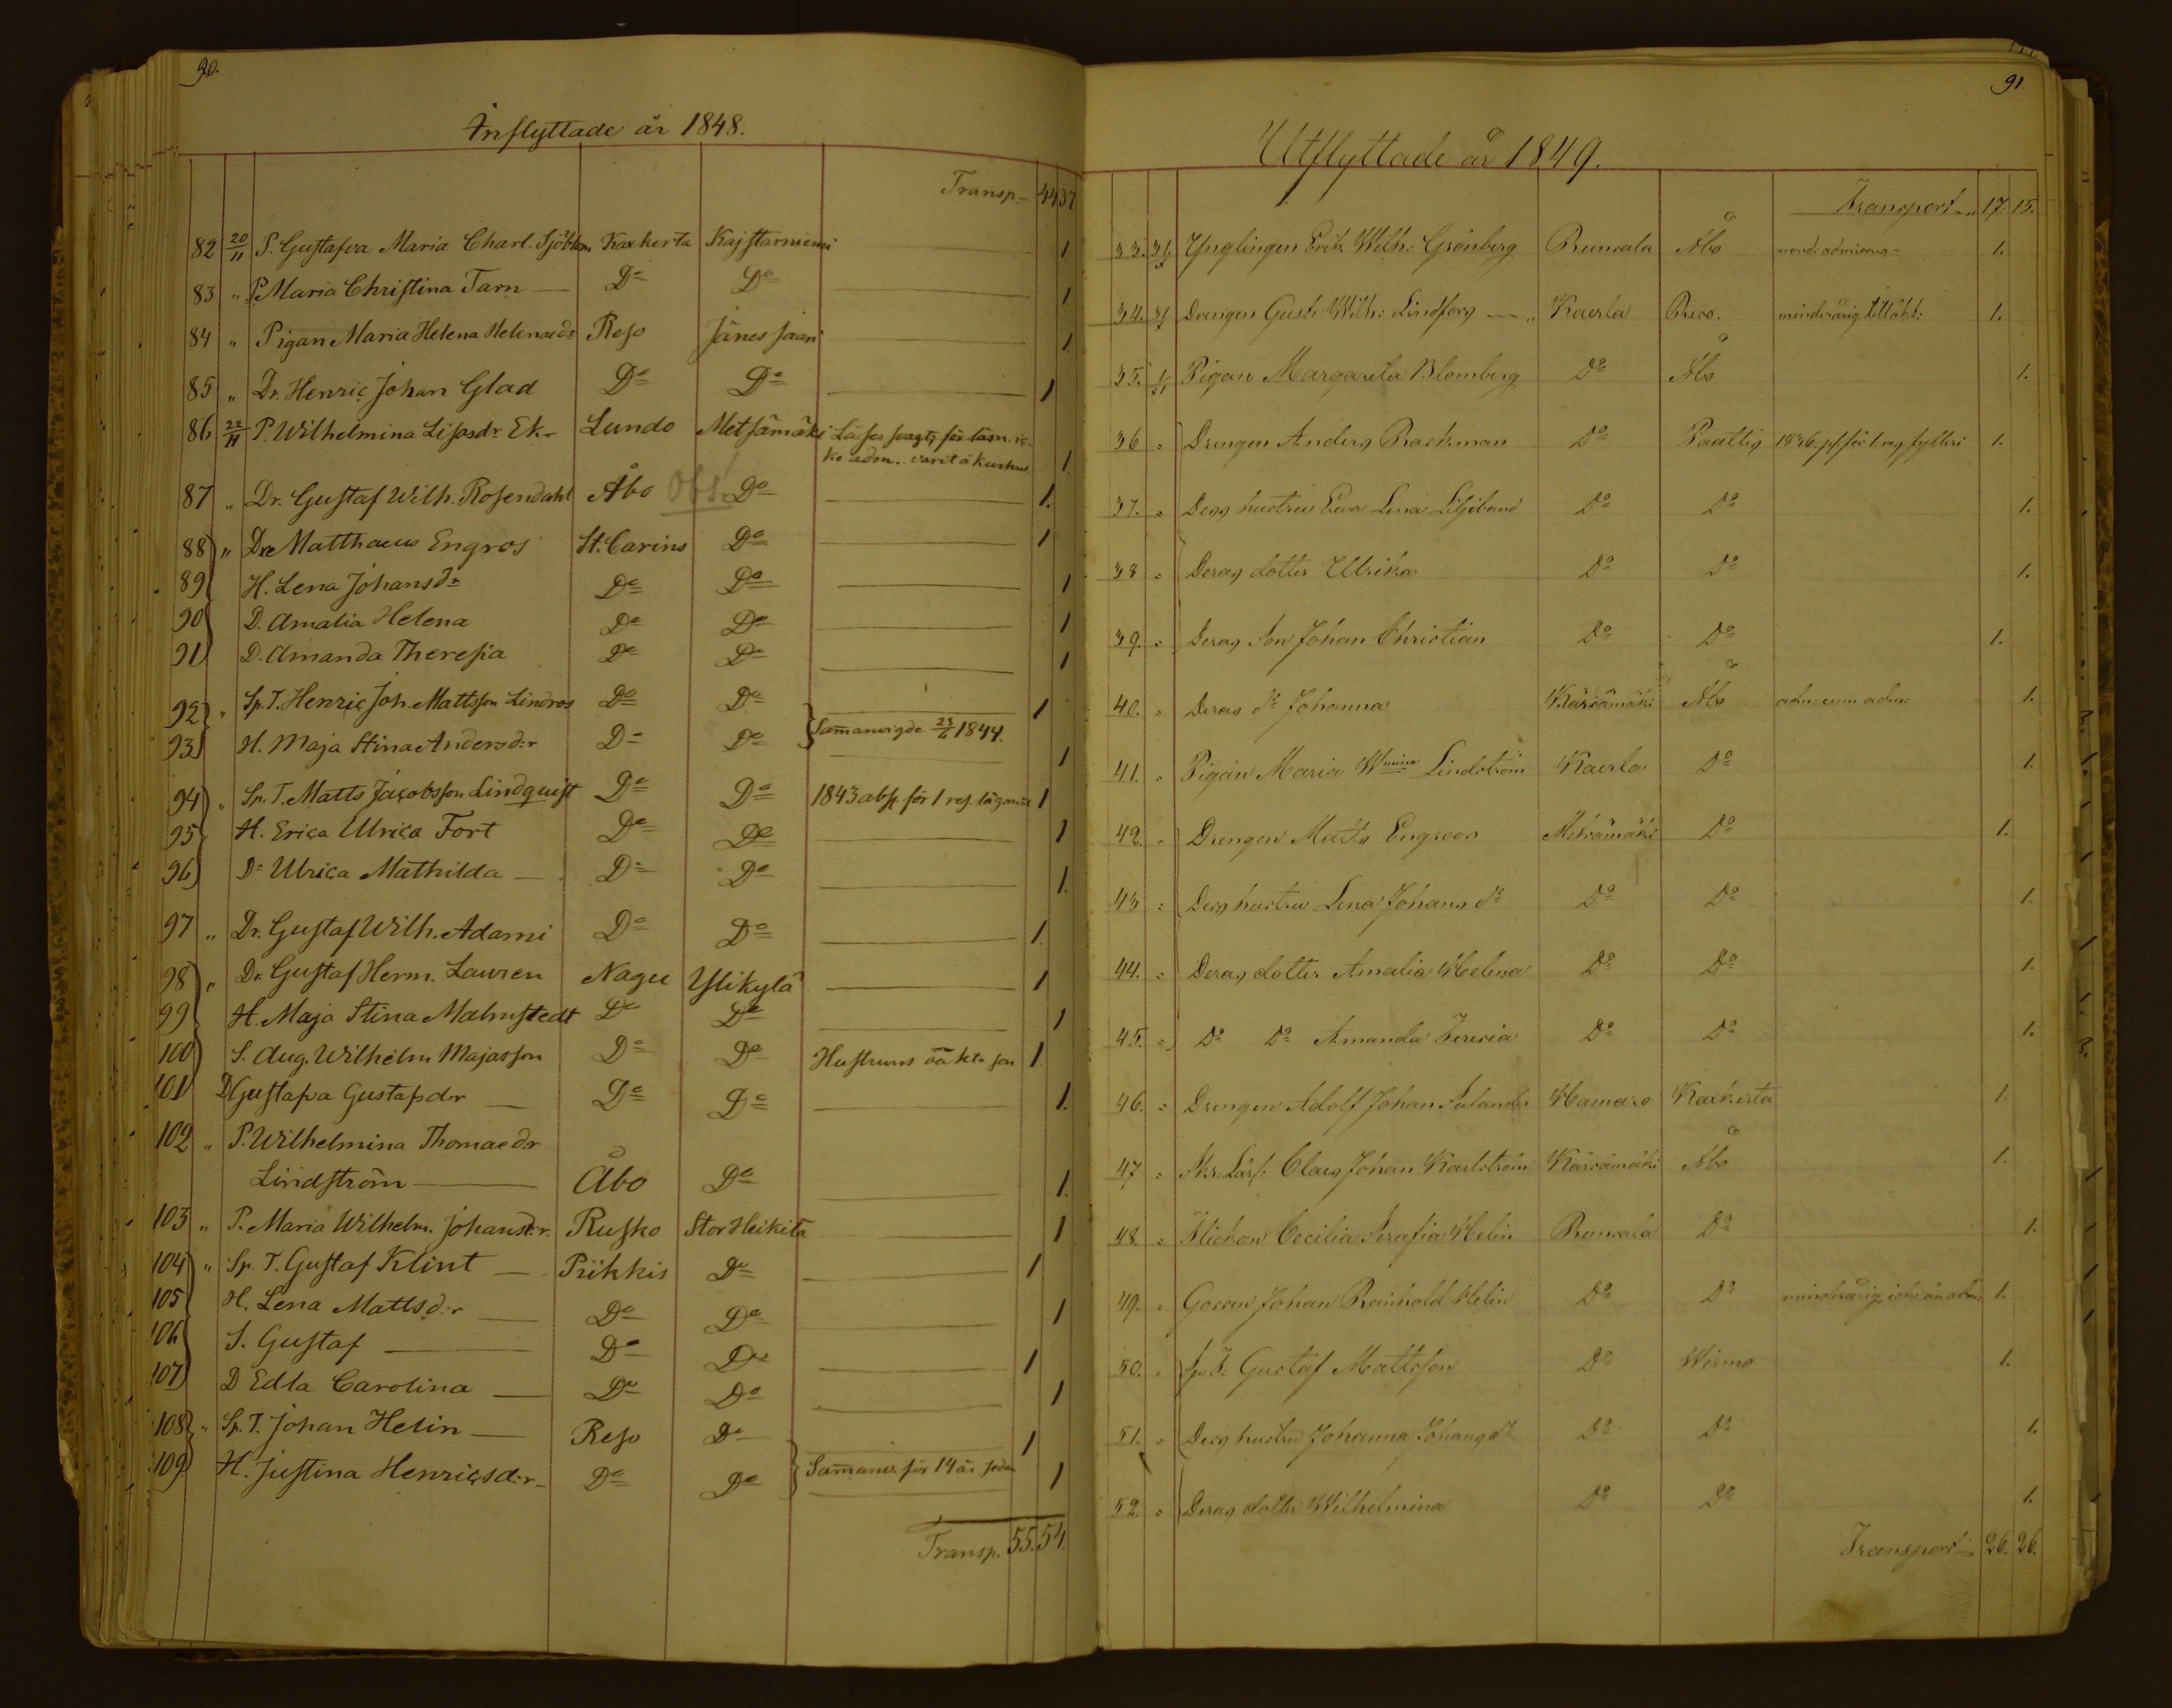 90.
Inflyttade år 1848.
Transp. 44 37
82 20/11 P. Gustafva Maria Charl. Sjöblom Kaxkerta Kajstarniemi 1
83 " P. Maria Christina Tarn — Do Do 1
84 " Pigan Maria Helena Helenaedr Reso Jänessaari 1
85 " Dr. Henric Johan Glad Do Do 1
86 22/11 P. Wilhelmina Lisasdr Ek Lundo Metsämäki
ke adm. varit å kurhus. 1
87 " Dr. Gustaf Wilh. Rosendahl Åbo Obs! Do 1.
88 " Dre Matthaeus Engros St. Carins Do 1
89 H. Lena Johansdr Do Do 1
90 D. Amalia Helena Do Do 1
91 D. Amanda Theresia Do Do 1
92 " Sp. T. Henric Joh. Mattsson Lindros Do Do 1
93 H. Maja Stina Andersd:r Do Do Sam̄anvigde 23/6 1844. 1
94 " Sp. T. Matts Jacobsson Lindquist Do Do 1843 abs. för 1 res. lägersm. 1
95 H. Erica Ulrica Fort Do Do 1
96 Dr Ulrica Mathilda — Do Do 1.
97 " Dr. Gustaf Wilh. Adami Do Do 1.
98 " Dr. Gustaf Herm. Lauren Nagu Ylikylä 1
99 H. Maja Stina Malmstedt Do Do 1
100 S. Aug. Wilhelm Majasson Do Do Hustruns oäkta son 1.
101 D Gustafva Gustafsdr — Do Do 1.
102 " P. Wilhelmina Thomaedr
Lindström — Åbo Do 1.
103 " P. Maria Wilhelm. Johansd:r. Rusko Stor Heikilä 1
104 " Sp. T. Gustaf Klint — Piikkis Do 1
105 H. Lena Mattsd:r — Do Do 1
106 S. Gustaf — Do Do 1
107 D Edla Carolina — Do Do 1
108 " Sp. T. Johan Helin — Reso Do 1
109 H. Justina Henricsd:r Do Do Sam̄anv. för 14 år sedan 1
Transp. 55. 54.
91
Utflyttade år 1849.
Transport 17. 15.
33. Ynglingen Erik Wilh: Grönberg Runsala Åbo nond: admissus 1.
34. Drengen Gust: Wilh: Lindfors Kaerla Reso. minderårig 1.
35. Pigan Margareta Blomberg Do Åbo 1.
36 " Drengen Anders Backman Do Paattis 1836 1.
37. " Dess hustru Eva Lena Liljestrand Do Do 1.
38 " Deras dotter Ulrika Do Do 1.
39. " Deras Son Johan Christian Do Do 1.
40. " Deras dr Johanna Kärsämäki Åbo adm: cum adm: 1.
41. " Pigan Maria Wmina Lindström Kaerla Do 1.
42. " Drengen Matts Engroos Metsämäki Do 1.
43 " Dess hustru Lena Johans dr Do Do 1.
44. " Deras dotter Amalia Helena Do Do 1.
45. " Do Do Amanda Teresia Do Do 1.
46. " Drengen Adolf Johan Salander Hamaro Kaxkerta 1.
47 " Skr: Lärl: Claes Johan Karlström Kärsämäki Åbo 1.
48. " Flickan Cecilia Serafia Helin Runsala Do 1.
49. " Gossen Johan Reinhold Helin Do Do minderårig, icke än adm. 1.
50. " Sp: T: Gustaf Mattsson Do Wirmo 1.
51. " Dess hustru Johanna Johans dr Do Do 1.
52. " Deras dotter Wilhelmina Do Do 1.
Transport 26. 26.